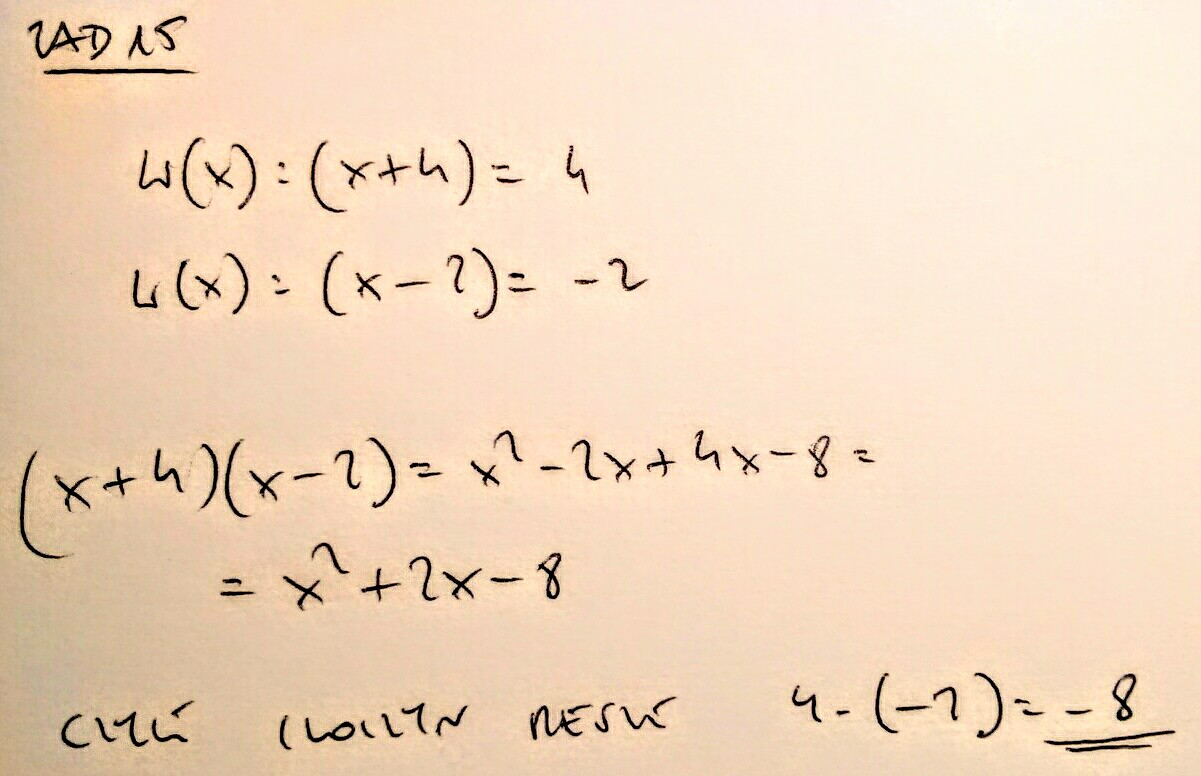 ZAD 15
W(x) : (x+4) = 4
W(x) : (x-2) = -2
(x+4)(x-2) = x²-2x+4x-8 =
= x²+2x-8
CZYLI ILOCZYN RESZT 4·(-2) = -8